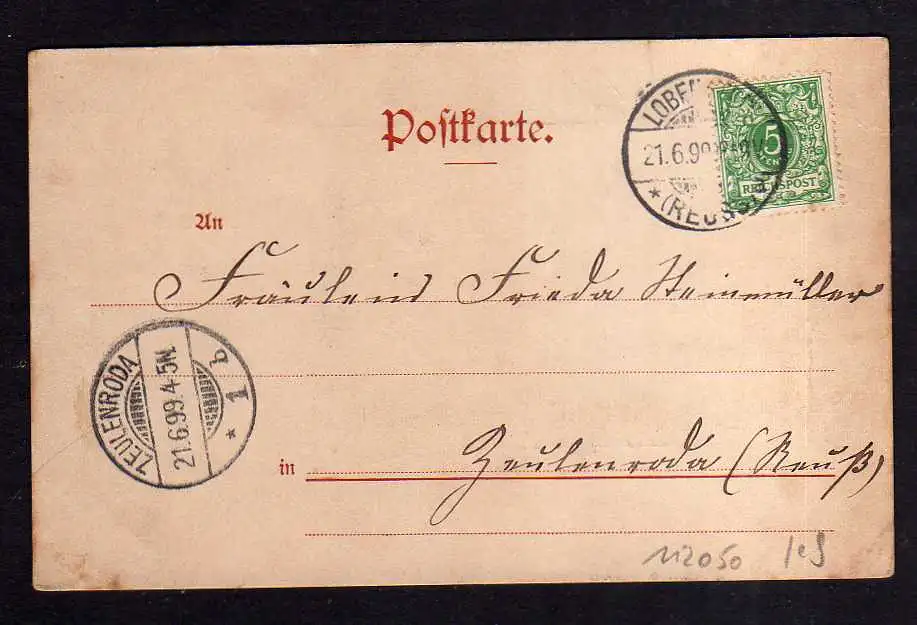 Postkarte.
LOBEN
21.6.99
* (REUSS)
5
REICHSPOST
An
Fräulein Frieda Steinmüller
ZEULENRODA
21.6.99.4-5N.
* 1 b
in Zeulenroda (Reuß)
112050